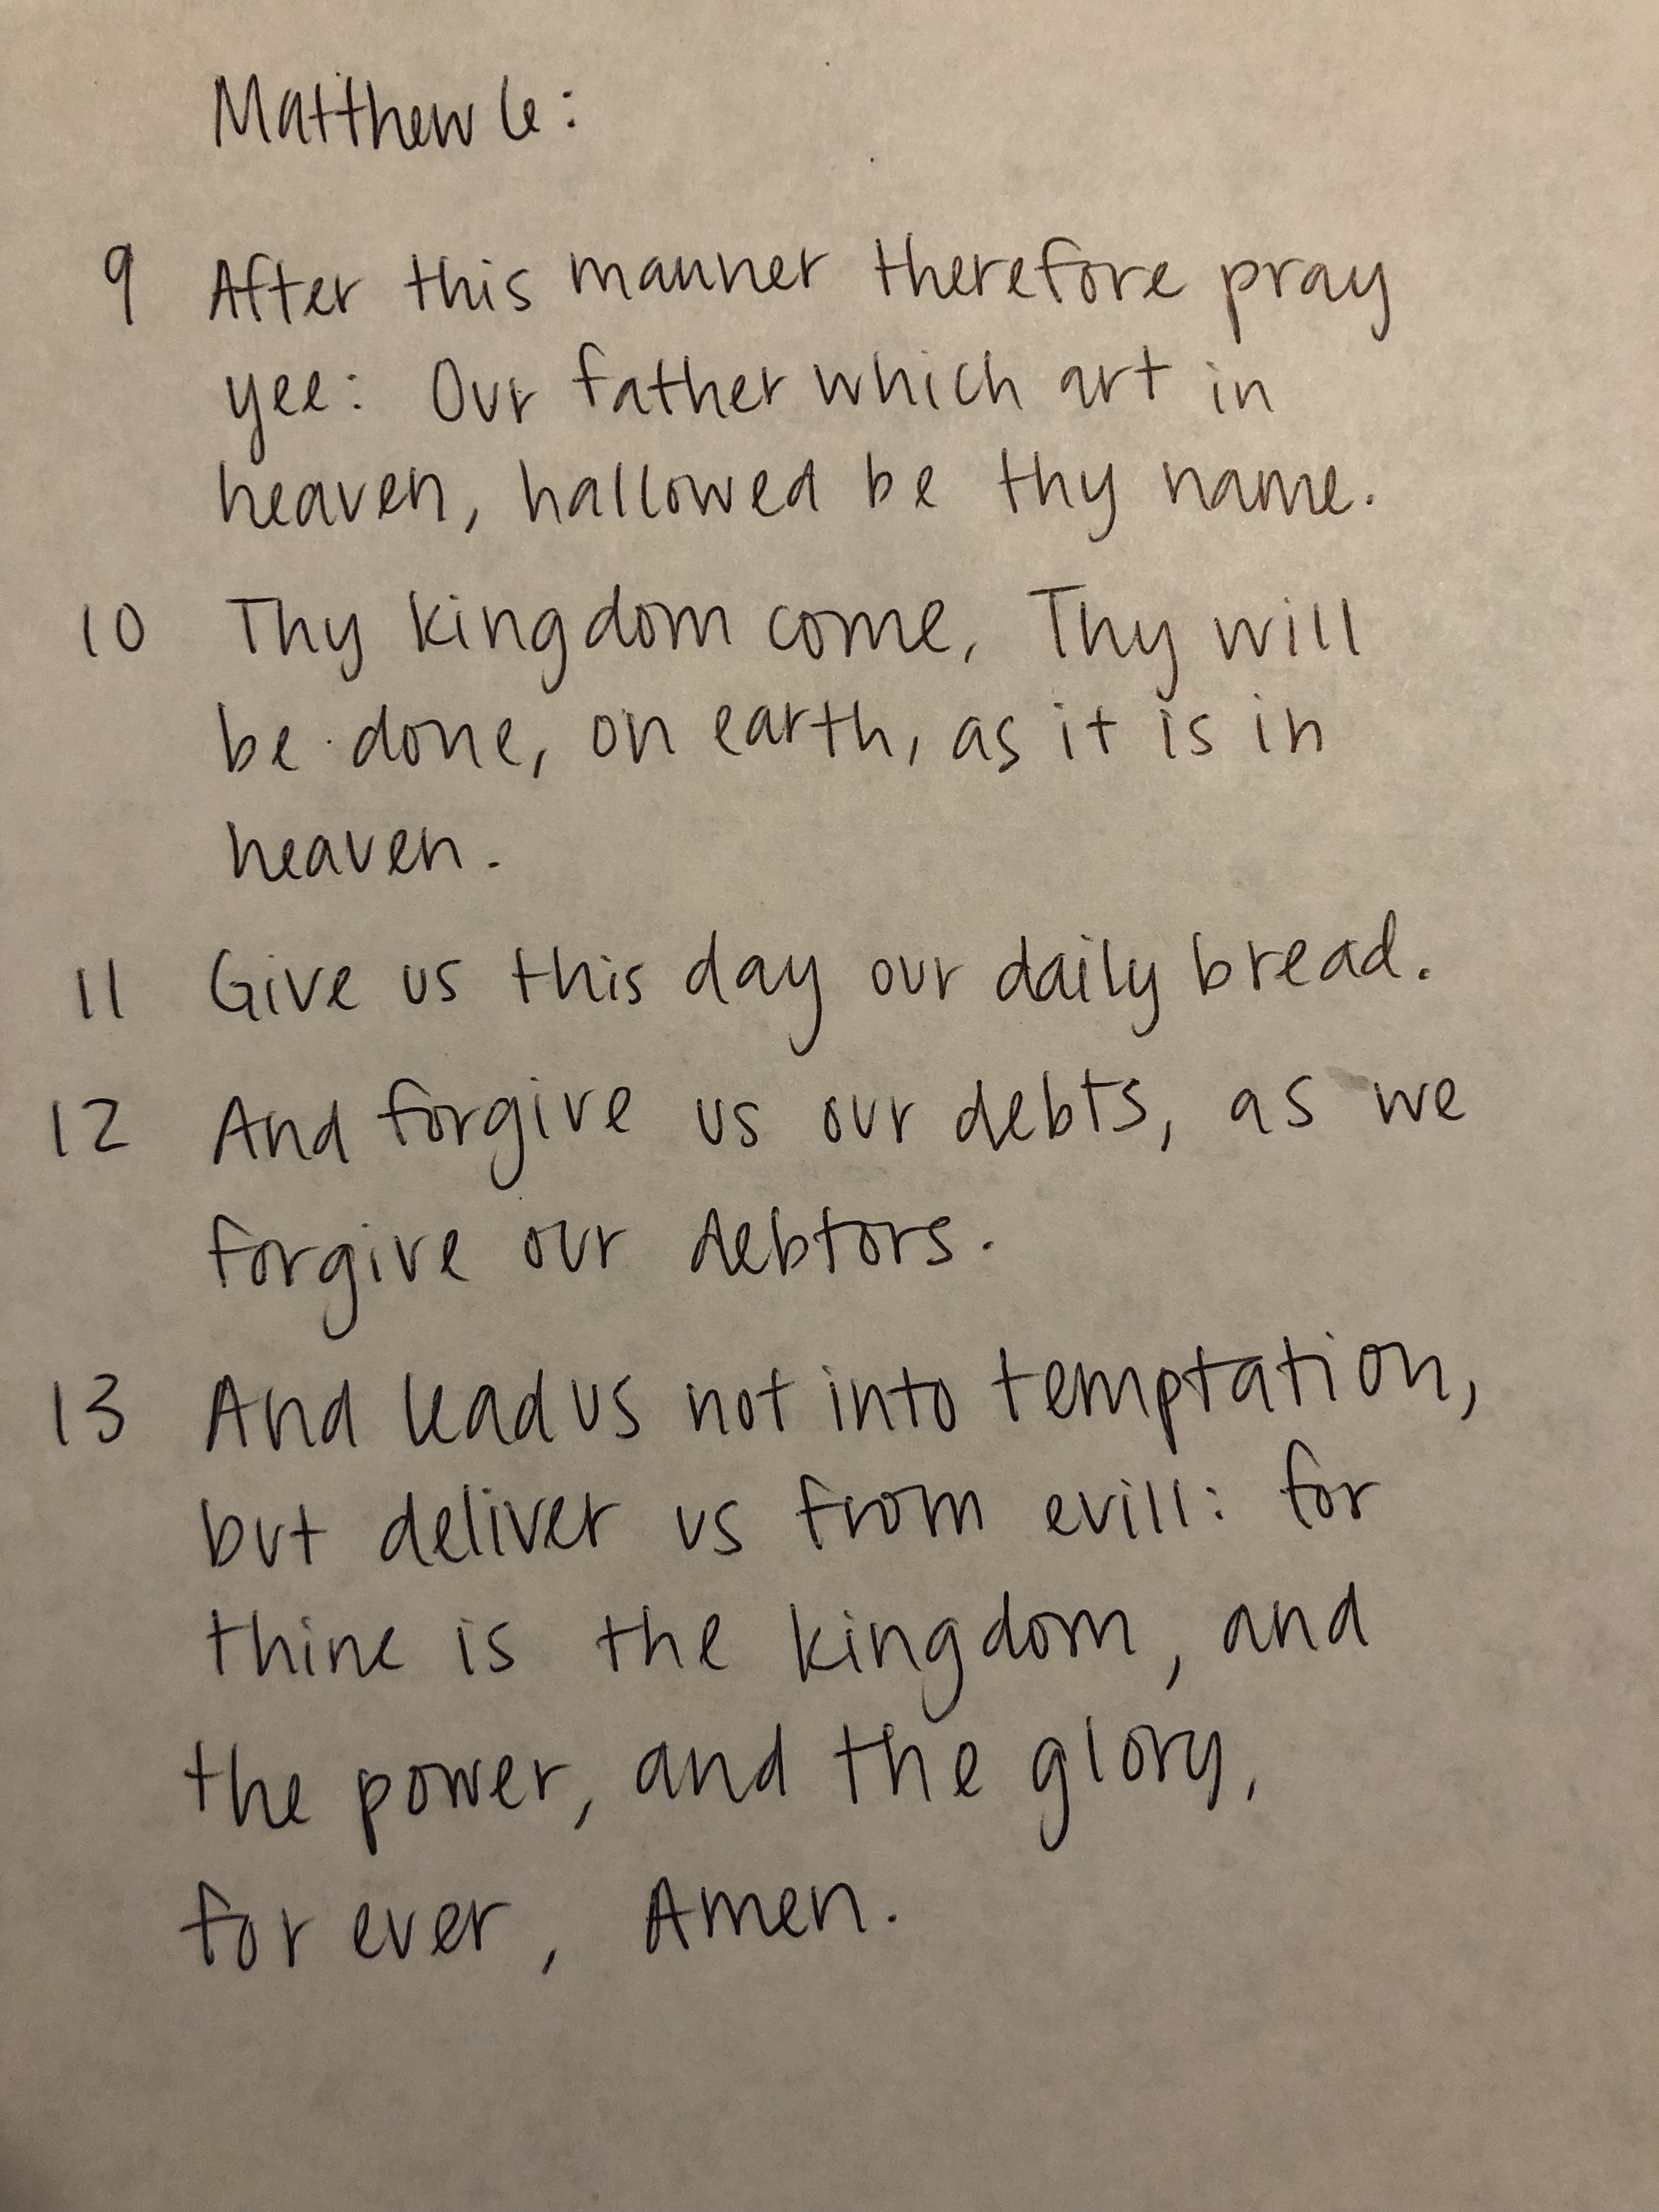 Matthew 6:
9 After this manner therefore pray
yee: Our father which art in
heaven, hallowed be thy name.
10 Thy kingdom come, Thy will
be done, on earth, as it is in
heaven.
11 Give us this day our daily bread.
12 And forgive us our debts, as we
forgive our debtors.
13 And lead us not into temptation,
but deliver us from evill: for
thine is the kingdom, and
the power, and the glory,
for ever, Amen.